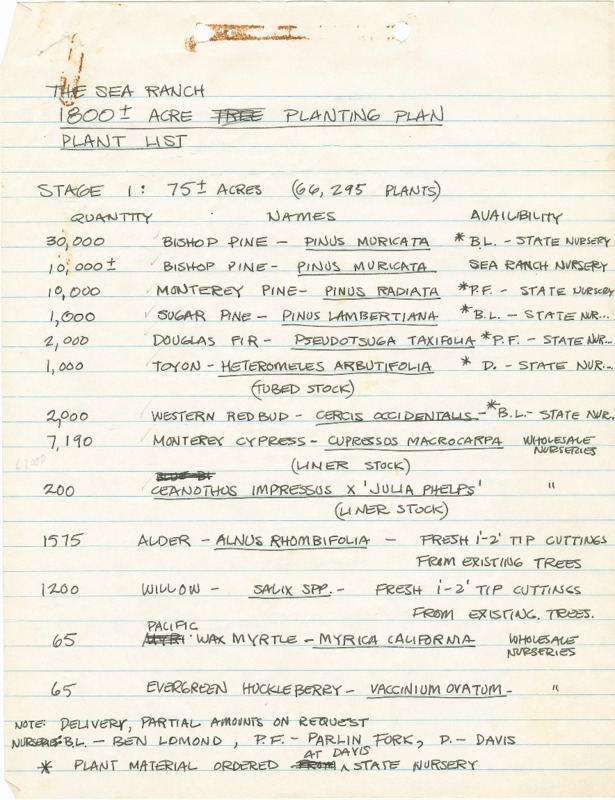 THE SEA RANCH
1800± ACRE TREE PLANTING PLAN
PLANT LIST
STAGE 1: 75± ACRES (66,295 PLANTS)
QUANTITY NAMES AVAILIBILITY
30,000 BISHOP PINE - PINUS MURICATA * B.L. - STATE NURSERY
10,000± BISHOP PINE - PINUS MURICATA SEA RANCH NURSERY
10,000 MONTEREY PINE - PINUS RADIATA * P.F. - STATE NURSERY
1,000 SUGAR PINE - PINUS LAMBERTIANA * B.L. - STATE NUR...
2,000 DOUGLAS FIR - PSEUDOTSUGA TAXIFOLIA * P.F. - STATE NUR...
1,000 TOYON - HETEROMELES ARBUTIFOLIA * D. - STATE NUR...
(TUBED STOCK)
2,000 WESTERN REDBUD - CERCIS OCCIDENTALIS - * B.L. - STATE NUR.
7,190 MONTEREY CYPRESS - CUPRESSOS MACROCARPA WHOLESALE NURSERIES
(LINER STOCK)
200 CEANOTHUS IMPRESSUS X 'JULIA PHELPS' "
(LINER STOCK)
1575 ALDER - ALNUS RHOMBIFOLIA - FRESH 1'-2' TIP CUTTINGS
FROM EXISTING TREES
1200 WILLOW - SALIX SPP. - FRESH 1'-2' TIP CUTTINGS
FROM EXISTING TREES.
PACIFIC
65 WAX MYRTLE - MYRICA CALIFORNIA WHOLESALE NURSERIES
65 EVERGREEN HUCKLEBERRY - VACCINIUM OVATUM - "
NOTE: DELIVERY, PARTIAL AMOUNTS ON REQUEST
NURSERIES: B.L. - BEN LOMOND, P.F. - PARLIN FORK, D. - DAVIS
AT DAVIS
* PLANT MATERIAL ORDERED FROM ^ STATE NURSERY